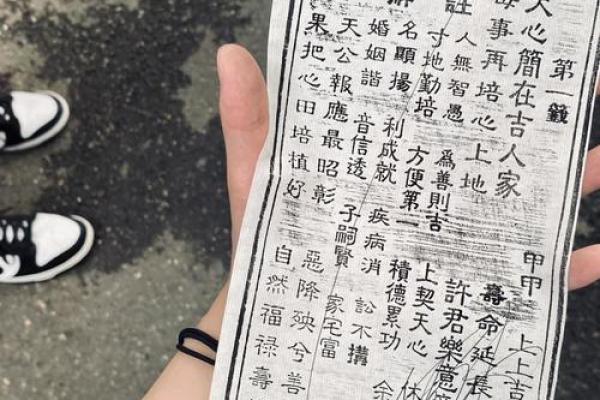 第一籤 甲甲 上上吉
天心簡在吉人家 壽命延長
事再培心上地 許君樂意
註 人無智愚 為善則吉 上契天心 休
寸地勤培 方便第一 積德累功
名顯揚 利成就 疾病消 訟不搆
婚姻諧 音信透 子嗣賢 家宅富
天公報應最昭彰 惡降殃兮善
果把心田培植好 自然福祿壽